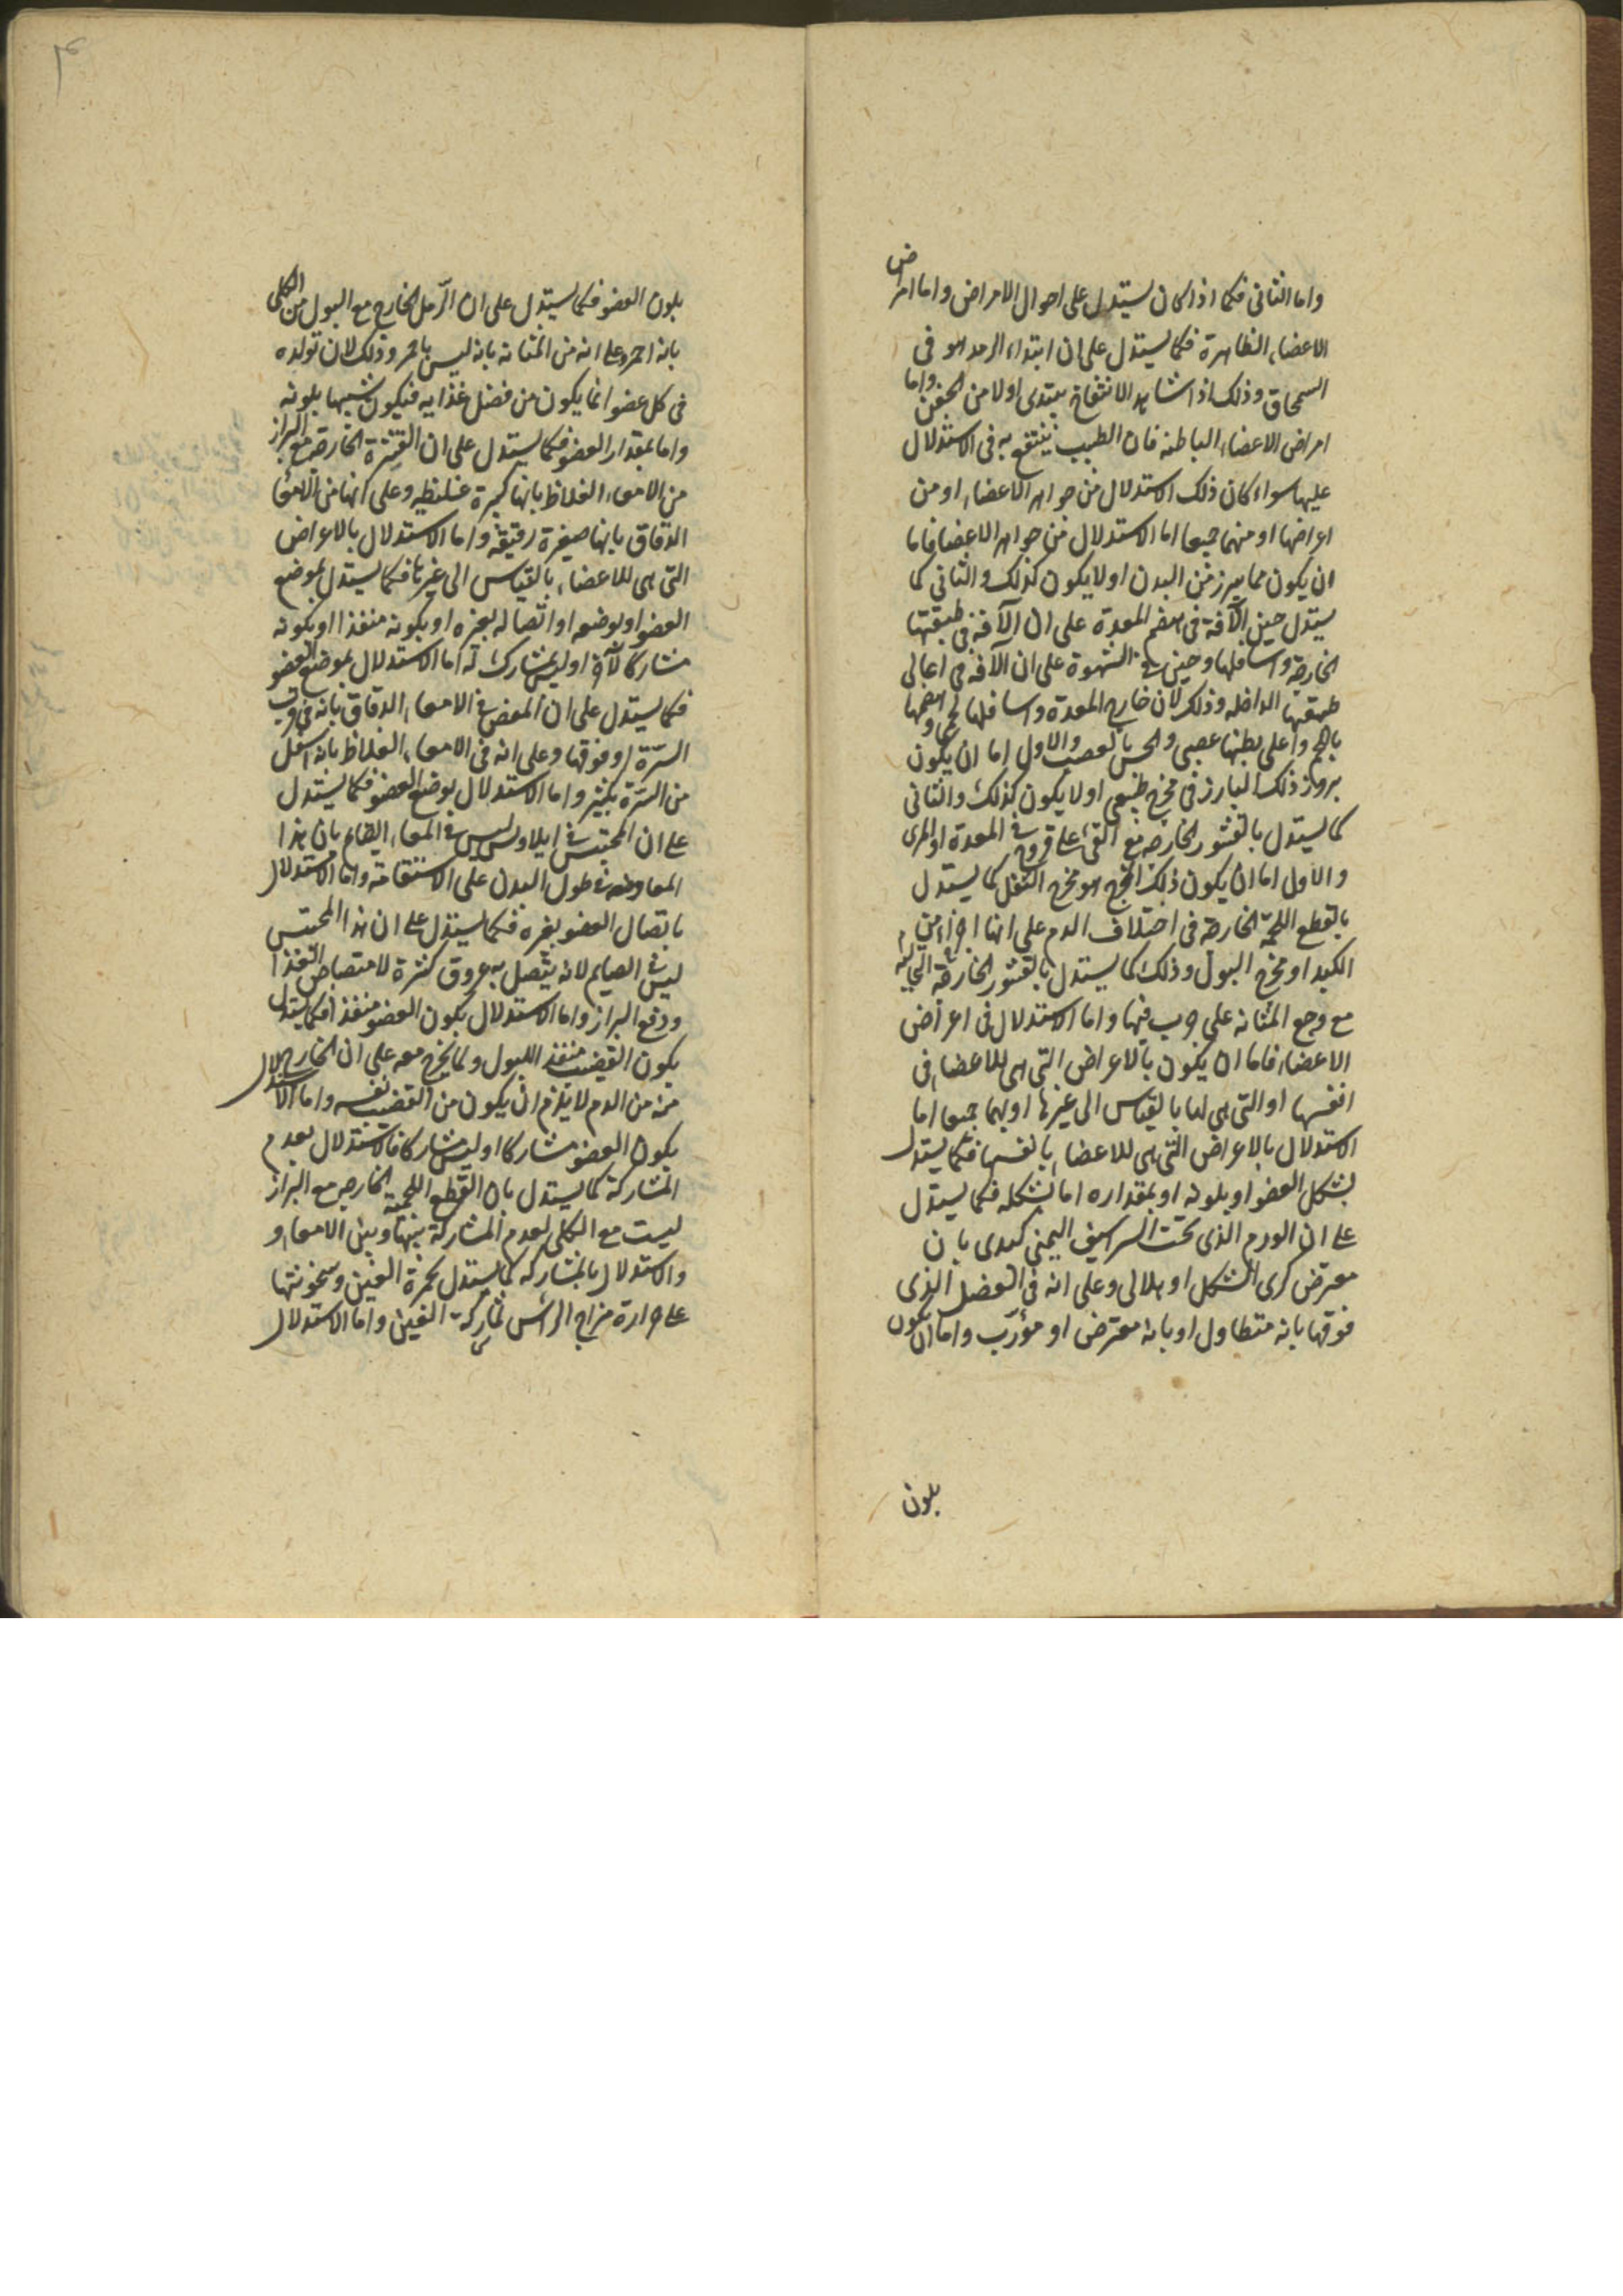 واما الثانى فكما اذا كان يستدل على احوال الامراض واما امراض
الاعضاء الظاهرة فكما يستدل على ان ابتداء الرمد هو فى
السمحاق وذلك اذا شاهد الانتفاخ يبتدى اولا من الجفن واما
امراض الاعضاء الباطنه فان الطبيب ينتفع به فى الاستدلال
عليها سواء كان ذلك الاستدلال من جواهر الاعضاء او من
اعراضها او منهما جميعا اما الاستدلال من جواهر الاعضا فاما
ان يكون مما يبرز من البدن او لا يكون كذلك والثانى كما
يستدل حين الآفة فى هضم المعدة على ان الآفة فى طبقتها
الخارجة واسافلها وحين فى الشهوة على ان الآفة فى اعالى
طبقتها الداخله وذلك لان خارج المعدة واسافلها لحمى وهضمها
باللحم واعلى بطنها عصبى والحس بالعصب والاول اما ان يكون
بروز ذلك البارز فى مخرج طبيعى او لا يكون كذلك والثانى
كما يستدل بالقشور الخارجه مع القئ على قروح فى المعدة او المرى
والاول اما ان يكون ذلك المخرج هو مخرج الثفل كما يستدل
بالقطع اللحمية الخارجة فى اختلاف الدم على انها اجزاء من
الكبد او مخرج البول وذلك كما يستدل بالقشور الخارجة النخاليه
مع وجع المثانه على جرب فيها واما الاستدلال من اعراض
الاعضاء فاما ان يكون بالاعراض التى هى للاعضاء فى
انفسها او التى هى لها بالقياس الى غيرها او بهما جميعا اما
الاستدلال بالاعراض التى هى للاعضاء بانفسها فكما يستدل
بشكل العضو او بلونه او بمقداره اما بشكله فكما يستدل
على ان الورم الذى تحت الشراسيف اليمنى كبدى بان
معترض كرى الشكل او هلالى وعلى انه فى العضل الذى
فوقها بانه متطاول او بانه معترض او مؤرّب واما ان يكون
بلون
بلون العضو فكما يستدل على ان الرّمل الخارج مع البول من الكلى
بانه احمر وعلى انه من المثانه بانه ليس باحمر وذلك لان تولده
فى كل عضو انما يكون من فضل غذايه فيكون شبيها بلونه
واما بمقدار العضو فكما يستدل على ان القشرة الخارجة مع البراز
من الامعاء الغلاظ بانها كبيرة غليظه وعلى انها من الامعا
الدقاق بانها صغيرة رقيقة واما الاستدلال بالاعراض
التى هى للاعضاء بالقياس الى غيرها فكما يستدل بموضع
العضو او بوضعه او اتصاله بغيره او بكونه منفذا او بكونه
مشاركا لآخر او ليس بمشارك له اما الاستدلال بموضع العضو
فكما يستدل على ان المغص فى الامعاء الدقاق بانه فى قرب
السرّة او فوقها وعلى انه فى الامعاء الغلاظ بانه اسفل
من السّرة بكثير واما الاستدلال بوضع العضو فكما يستدل
على ان المحتبس فى ايلاوس ليس فى المعاء الصايم بان هذا
المعا وضعه فى طول البدن على الاستقامة واما الاستدلال
باتصال العضو بغيره فكما يستدل على ان هذا المحتبس
ليس فى الصايم لانه يتصل به عروق كثيرة لامتصاص الغذا
ودفع البراز واما الاستدلال بكون العضو منفذا فكما يستدل
بكون القضيب منفذ اللبول ولما يخرج معه على ان الخارج
منه من الدم لا يلزم ان يكون من القضيب نفسه واما الاستدلال
بكون العضو مشاركا او ليس مشاركا فالاستدلال بعدم
المشاركة كما يستدل بان القطع اللحمية الخارجه مع البراز
ليست مع الكلى لعدم المشاركة بينها وبين الامعاء و
والاستدلال بالمشاركه كما يستدل بحمرة العينين وسخونتها
على حرارة مزاج الرأس لمشاركة العينين واما الاستدلال